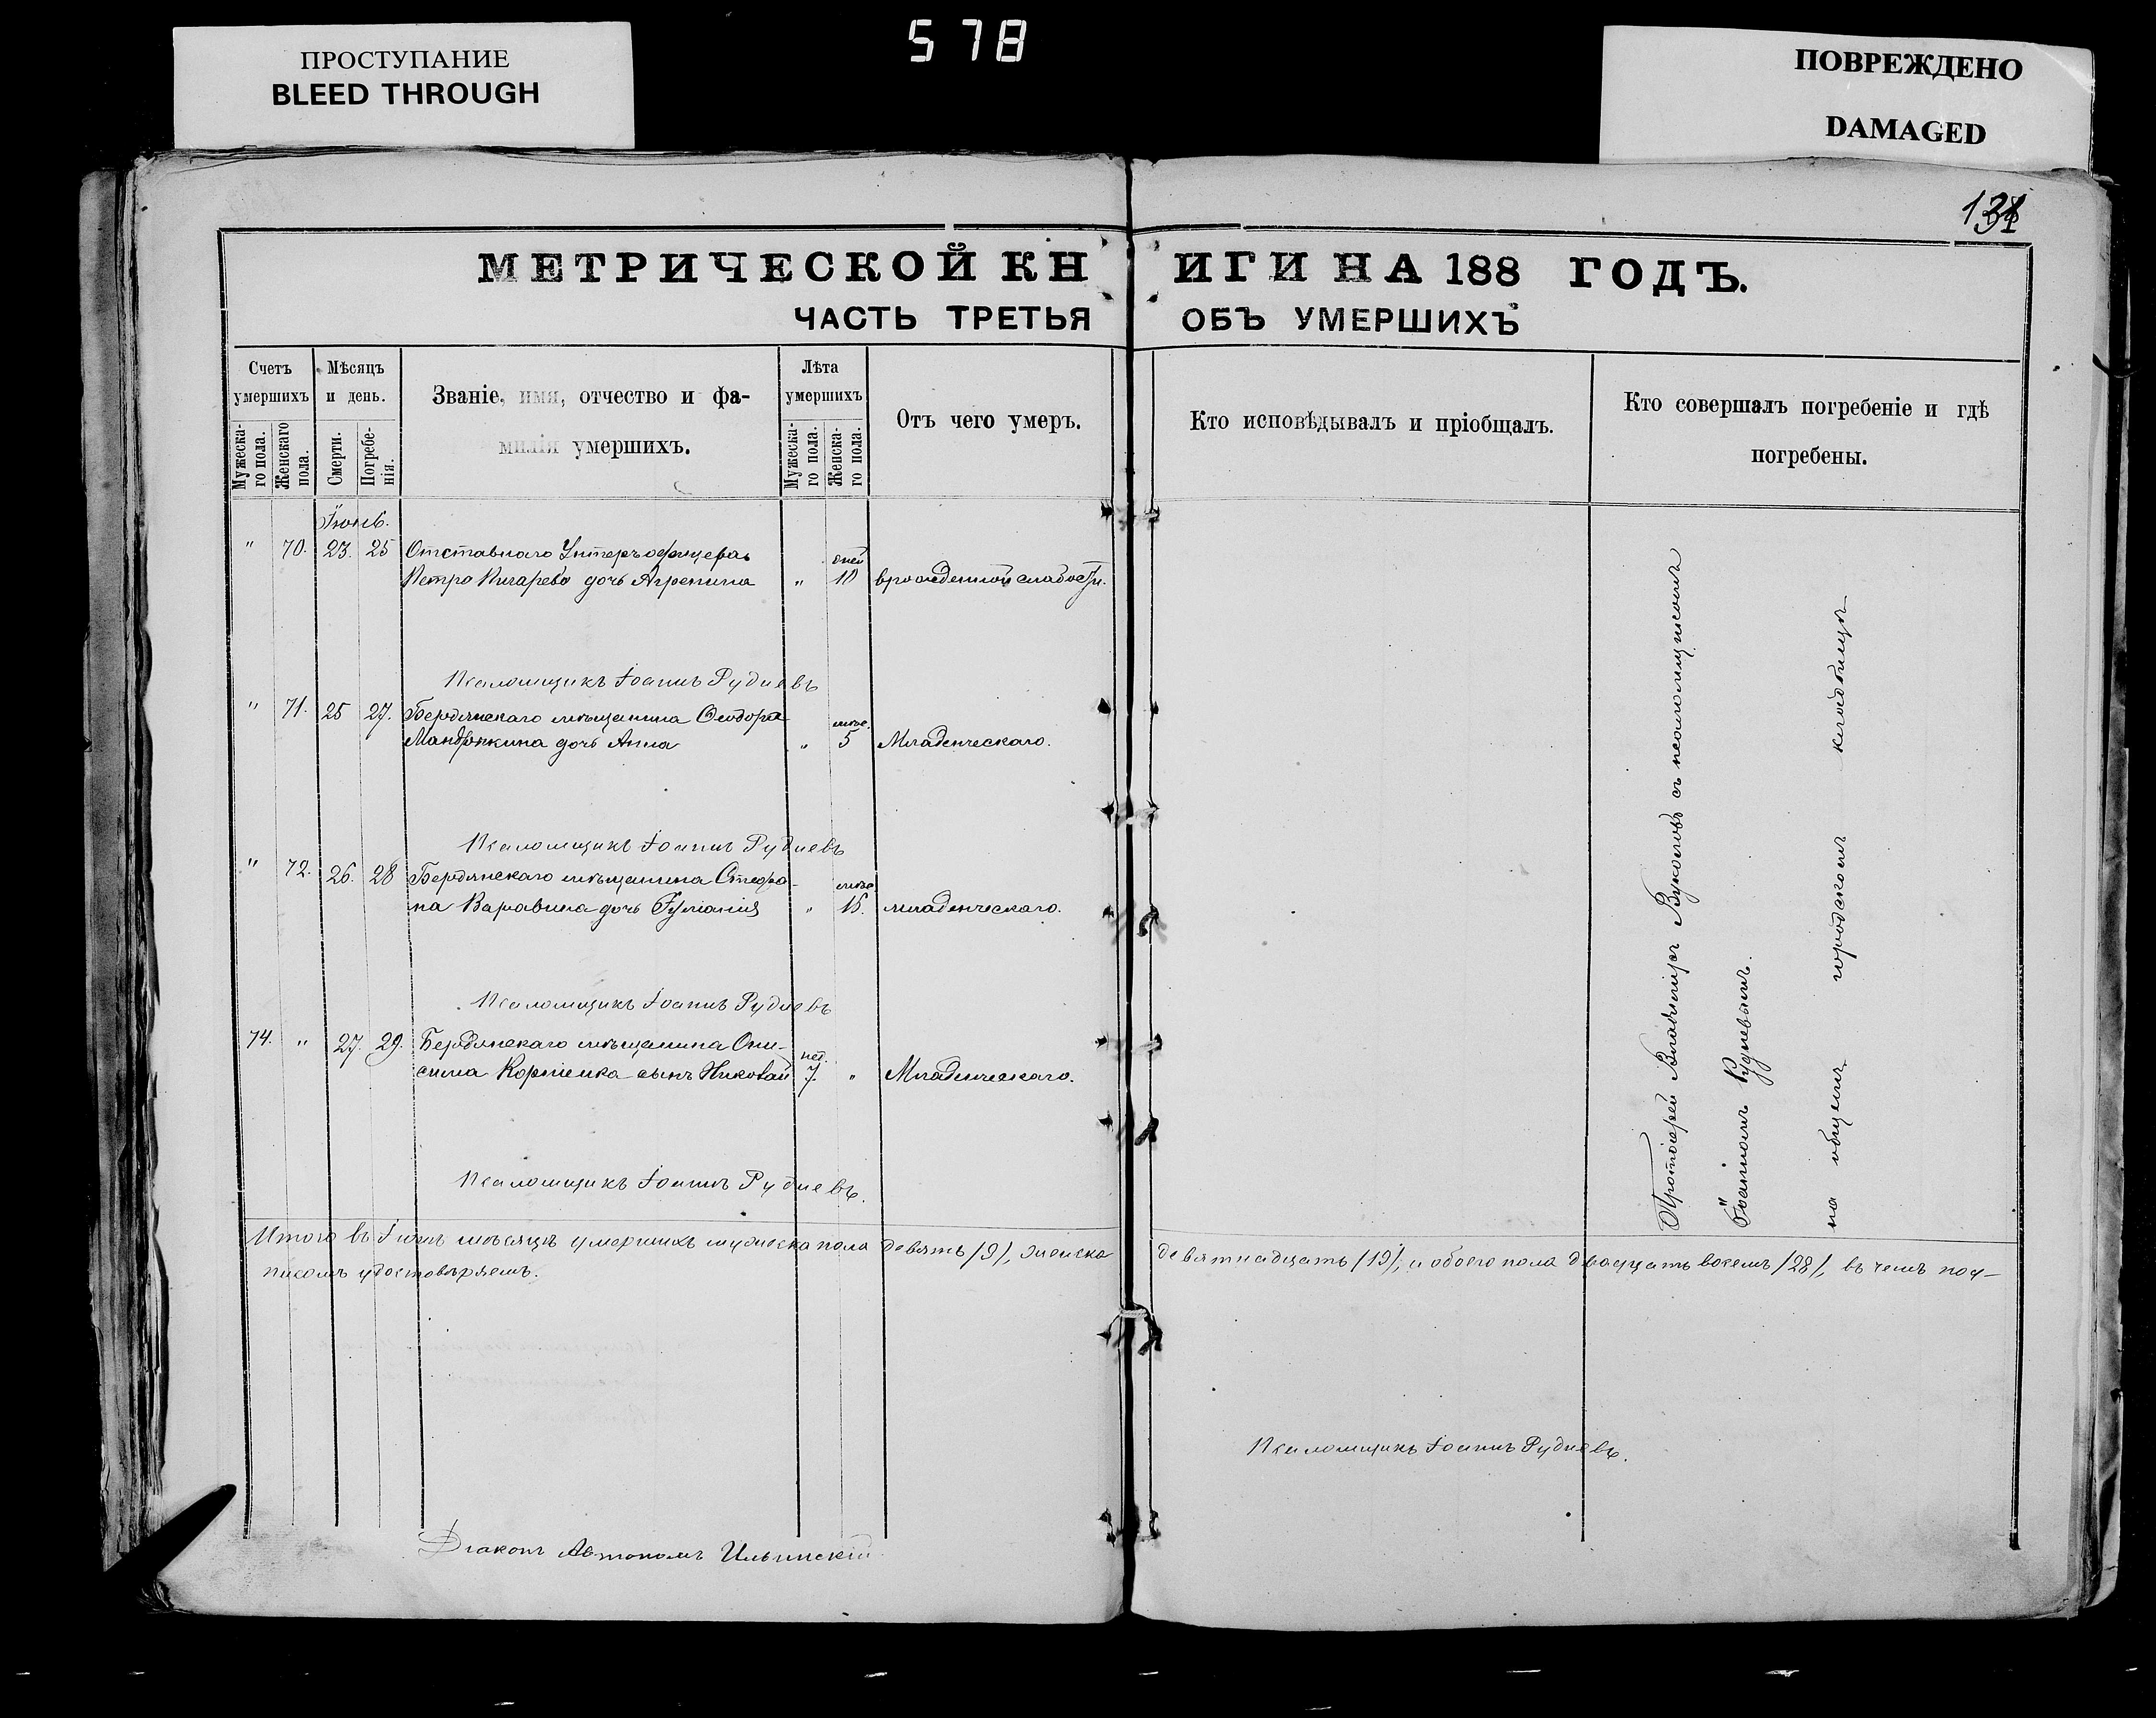 ПРОСТУПАНИЕ
BLEED THROUGH
578
ПОВРЕЖДЕНО
DAMAGED
МЕТРИЧЕСКОЙ КНИГИ НА 188 ГОДЪ.
ЧАСТЬ ТРЕТЬЯ ОБЪ УМЕРШИХЪ
Счетъ умершихъ
Мужеска-го пола.
Женскаго пола.
Мѣсяцъ и день.
Смерти.
Погребе-нія.
Званіе, имя, отчество и фа-
милія умершихъ.
Лѣта умершихъ
Мужеска-го пола.
Женска-го пола.
Отъ чего умеръ.
Кто исповѣдывалъ и пріобщалъ.
Кто совершалъ погребеніе и гдѣ
погребены.
Іюнь.
" 70. 23. 25 Отставнаго Унтеръофицера дней
Петра дочь Агрепина " 10 врожденной слабости.
Псаломщикъ Іоаннъ Рудневъ
" 71. 25 27. Бердянскаго мѣщанина Ѳеодора мѣс.
дочь Анна " 5 Младенческаго.
Псаломщикъ Іоаннъ Рудневъ
" 72. 26. 28 Бердянскаго мѣщанина Стефа- мѣс.
на Варавина дочь Іуліанія " 15. младенческаго.
Псаломщикъ Іоаннъ Рудневъ
74. " 27. 29. Бердянскаго мѣщанина Они- нед.
сима Корніенка сынъ Николай 7. " Младенческаго.
Псаломщикъ Іоаннъ Рудневъ.
Протоіерей Владиміръ съ псаломщикомъ
Іоанномъ Рудневымъ.
на общемъ городскомъ кладбищѣ
Итого въ Іюнѣ мѣсяцѣ умершихъ мужеска пола девять /9/, женска девятнадцать /19/, и обоего пола двадцать восемь /28/, въ чемъ под-
писомъ удостовѣряемъ.
Псаломщикъ Іоаннъ Рудневъ.
Діаконъ Автономъ Ильинскій